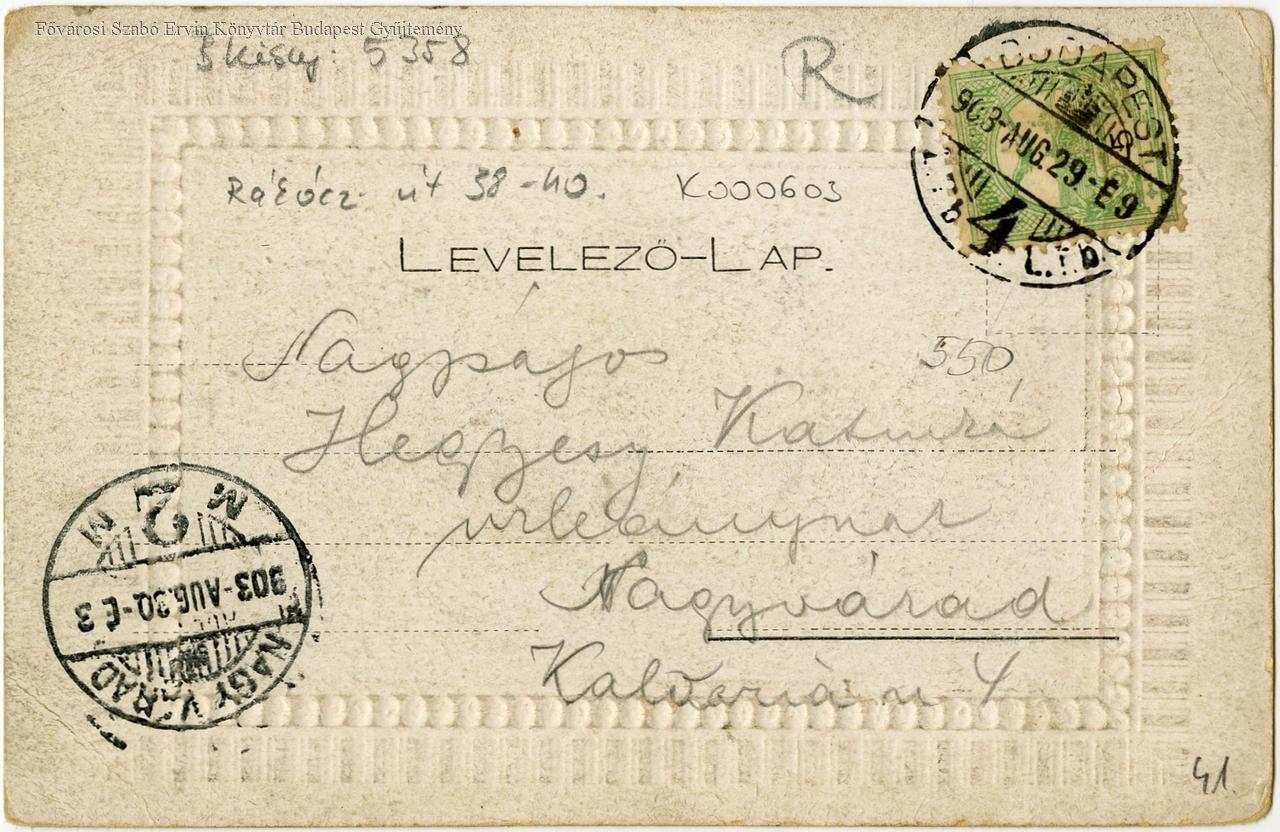 Fővárosi Szabó Ervin Könyvtár Budapest Gyűjtemény
5358
R
BUDAPEST
903-AUG.29-É9
4
Rákócz út 38-40. K000603
LEVELEZŐ-LAP.
550
Nagysájos
Hegyesy Katinká
urleánynak
Nagyvárad
Kalvaria u 4
M 2 M
903-AUG.30.-É3
NAGYVÁRAD
41.